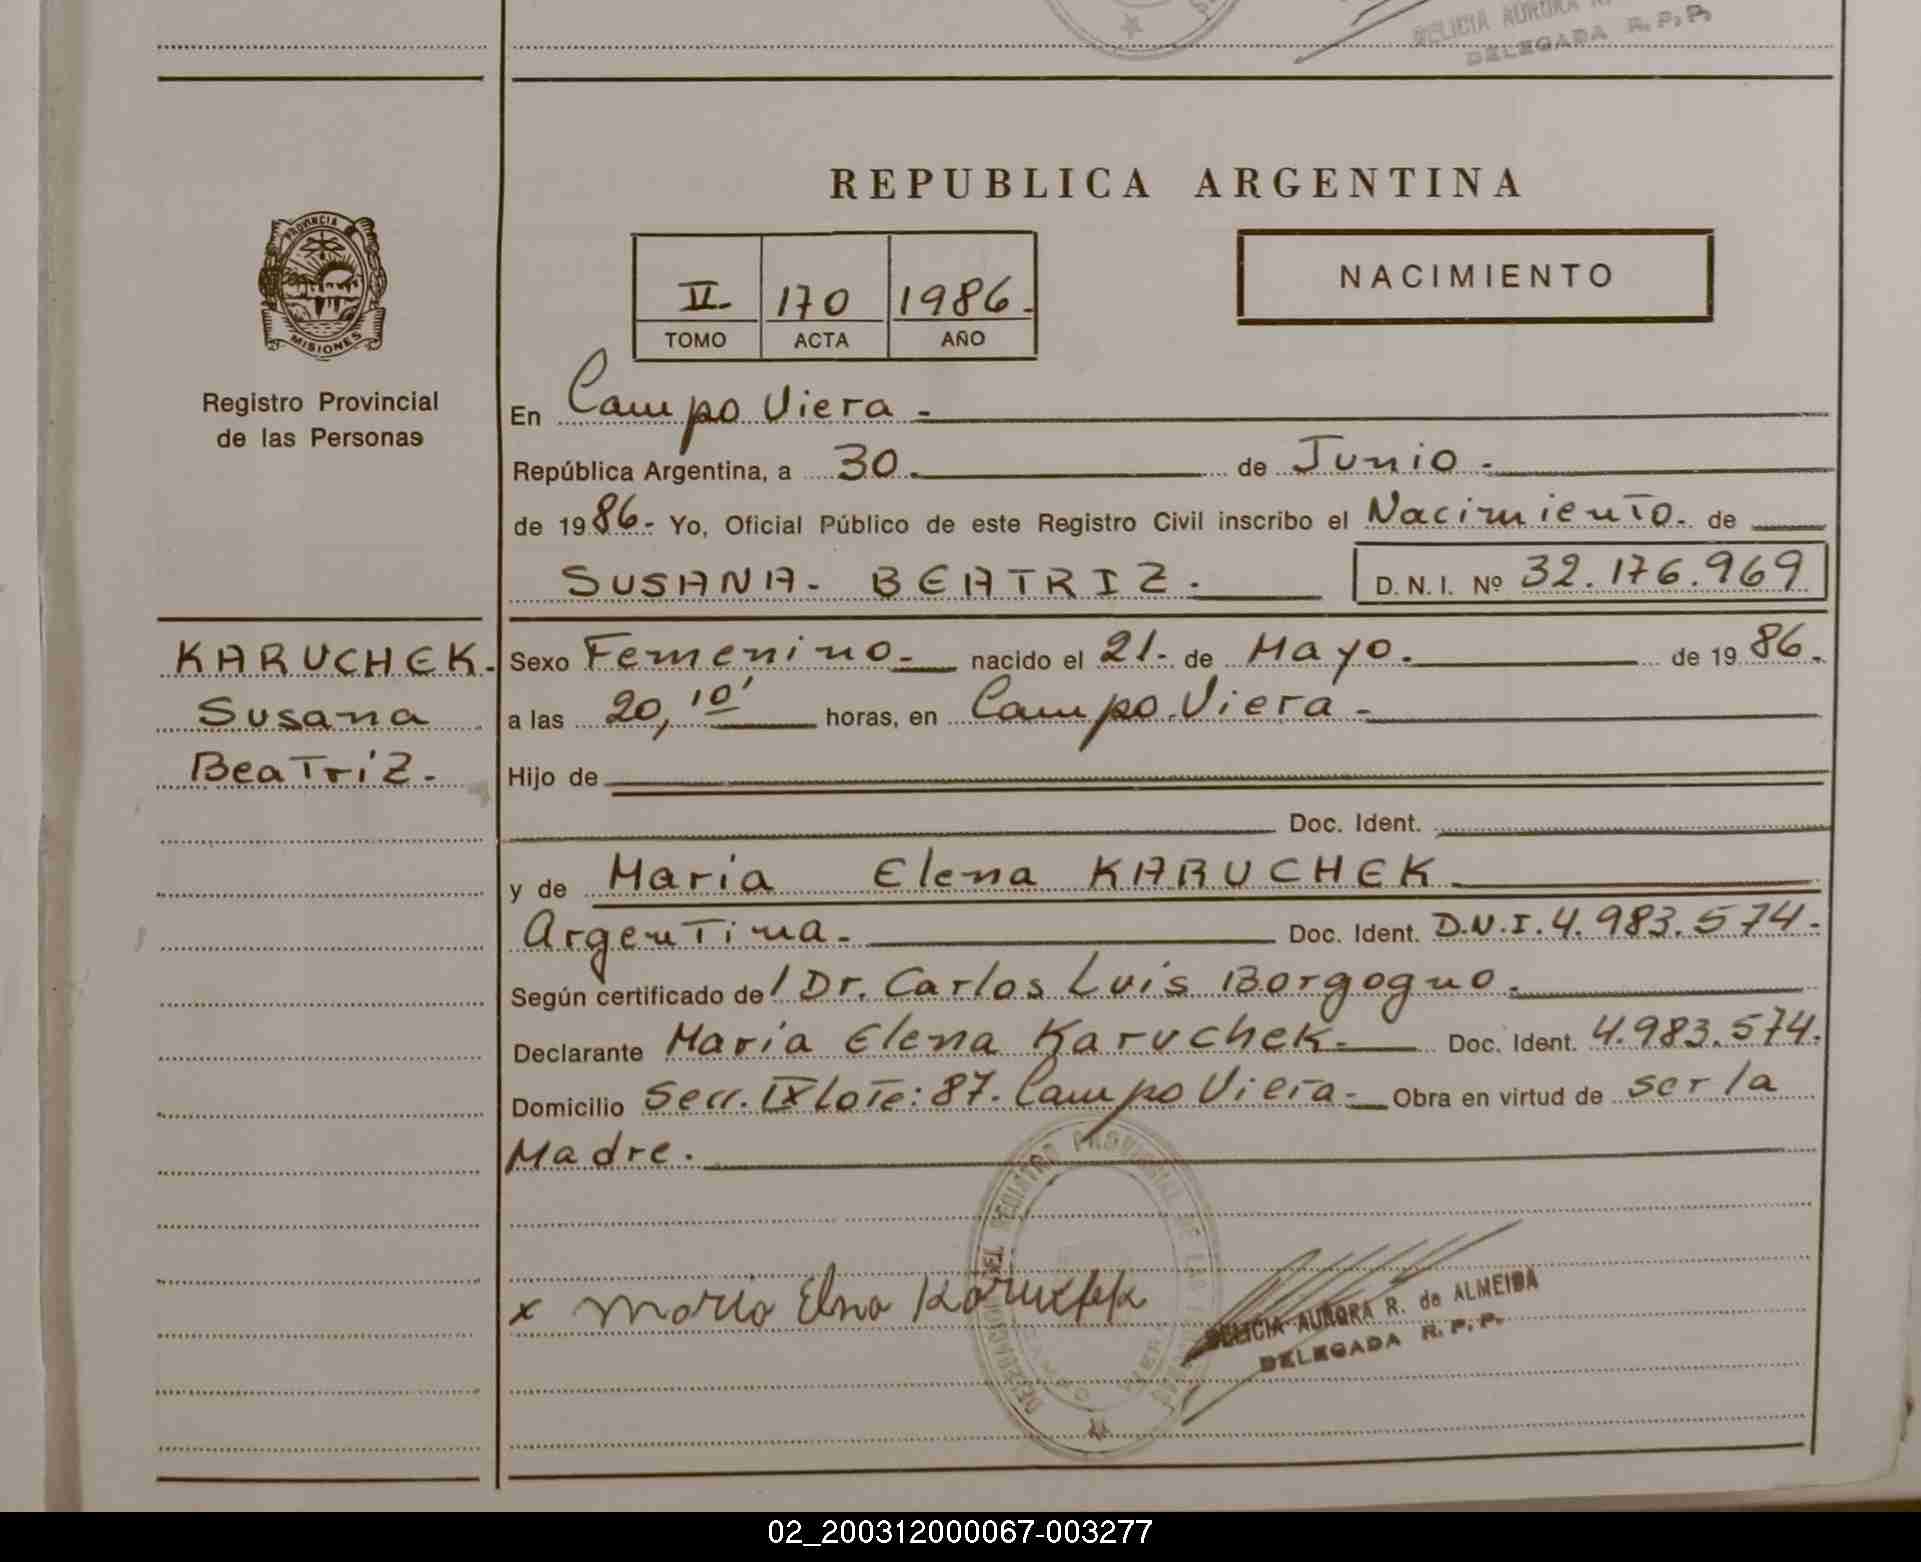 DELICIA AURORA R.
DELEGADA R.P.P.
REPUBLICA ARGENTINA
PROVINCIA
MISIONES
Registro Provincial
de las Personas
II- 170 1986.-
TOMO ACTA AÑO
NACIMIENTO
En Campo Viera -
República Argentina, a 30. de Junio -
de 1986.- Yo, Oficial Público de este Registro Civil inscribo el Nacimiento. de
SUSANA - BEATRIZ. D.N.I. Nº 32.176.969
KARUCHEK.
Susana
Beatriz.-
Sexo Femenino.- nacido el 21.- de Mayo. de 1986.
a las 20,10' horas, en Campo Viera -
Hijo de
Doc. Ident.
y de Maria Elena KARUCHEK
Argentina.- Doc. Ident. D.N.I. 4.983.574.-
Según certificado de / Dr. Carlos Luis Borgogno.
Declarante María Elena Karuchek.- Doc. Ident. 4.983.574.
Domicilio Secc. IX Lote: 87. Campo Viera.- Obra en virtud de ser la
Madre.
x Maria Elna Karuchek
DELICIA AURORA R. de ALMEIDA
DELEGADA R.P.P.
02_200312000067-003277